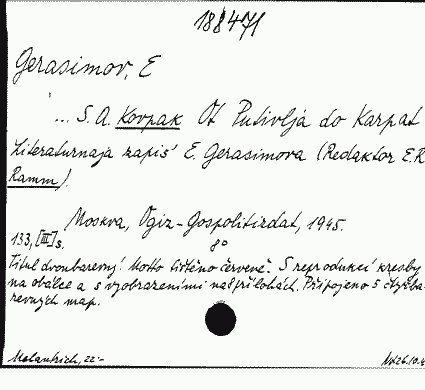 188471
Gerasimov, E
... S. A. Kovpak Ot Putivlja do Karpat
Literaturnaja zapis' E. Gerasimova (Redaktor E. R.
Ramm).
Moskva, Ogiz-Gospolitizdat, 1945.
133, [III] s. 8°
Titul dvoubarevný. Motto tištěno červeně. S reprodukcí kresby
na obálce a s vyobrazeními na 8 přílohách. Připojeno 5 čtyřba-
revných map.
Melantrich, 22:- 26.10.4